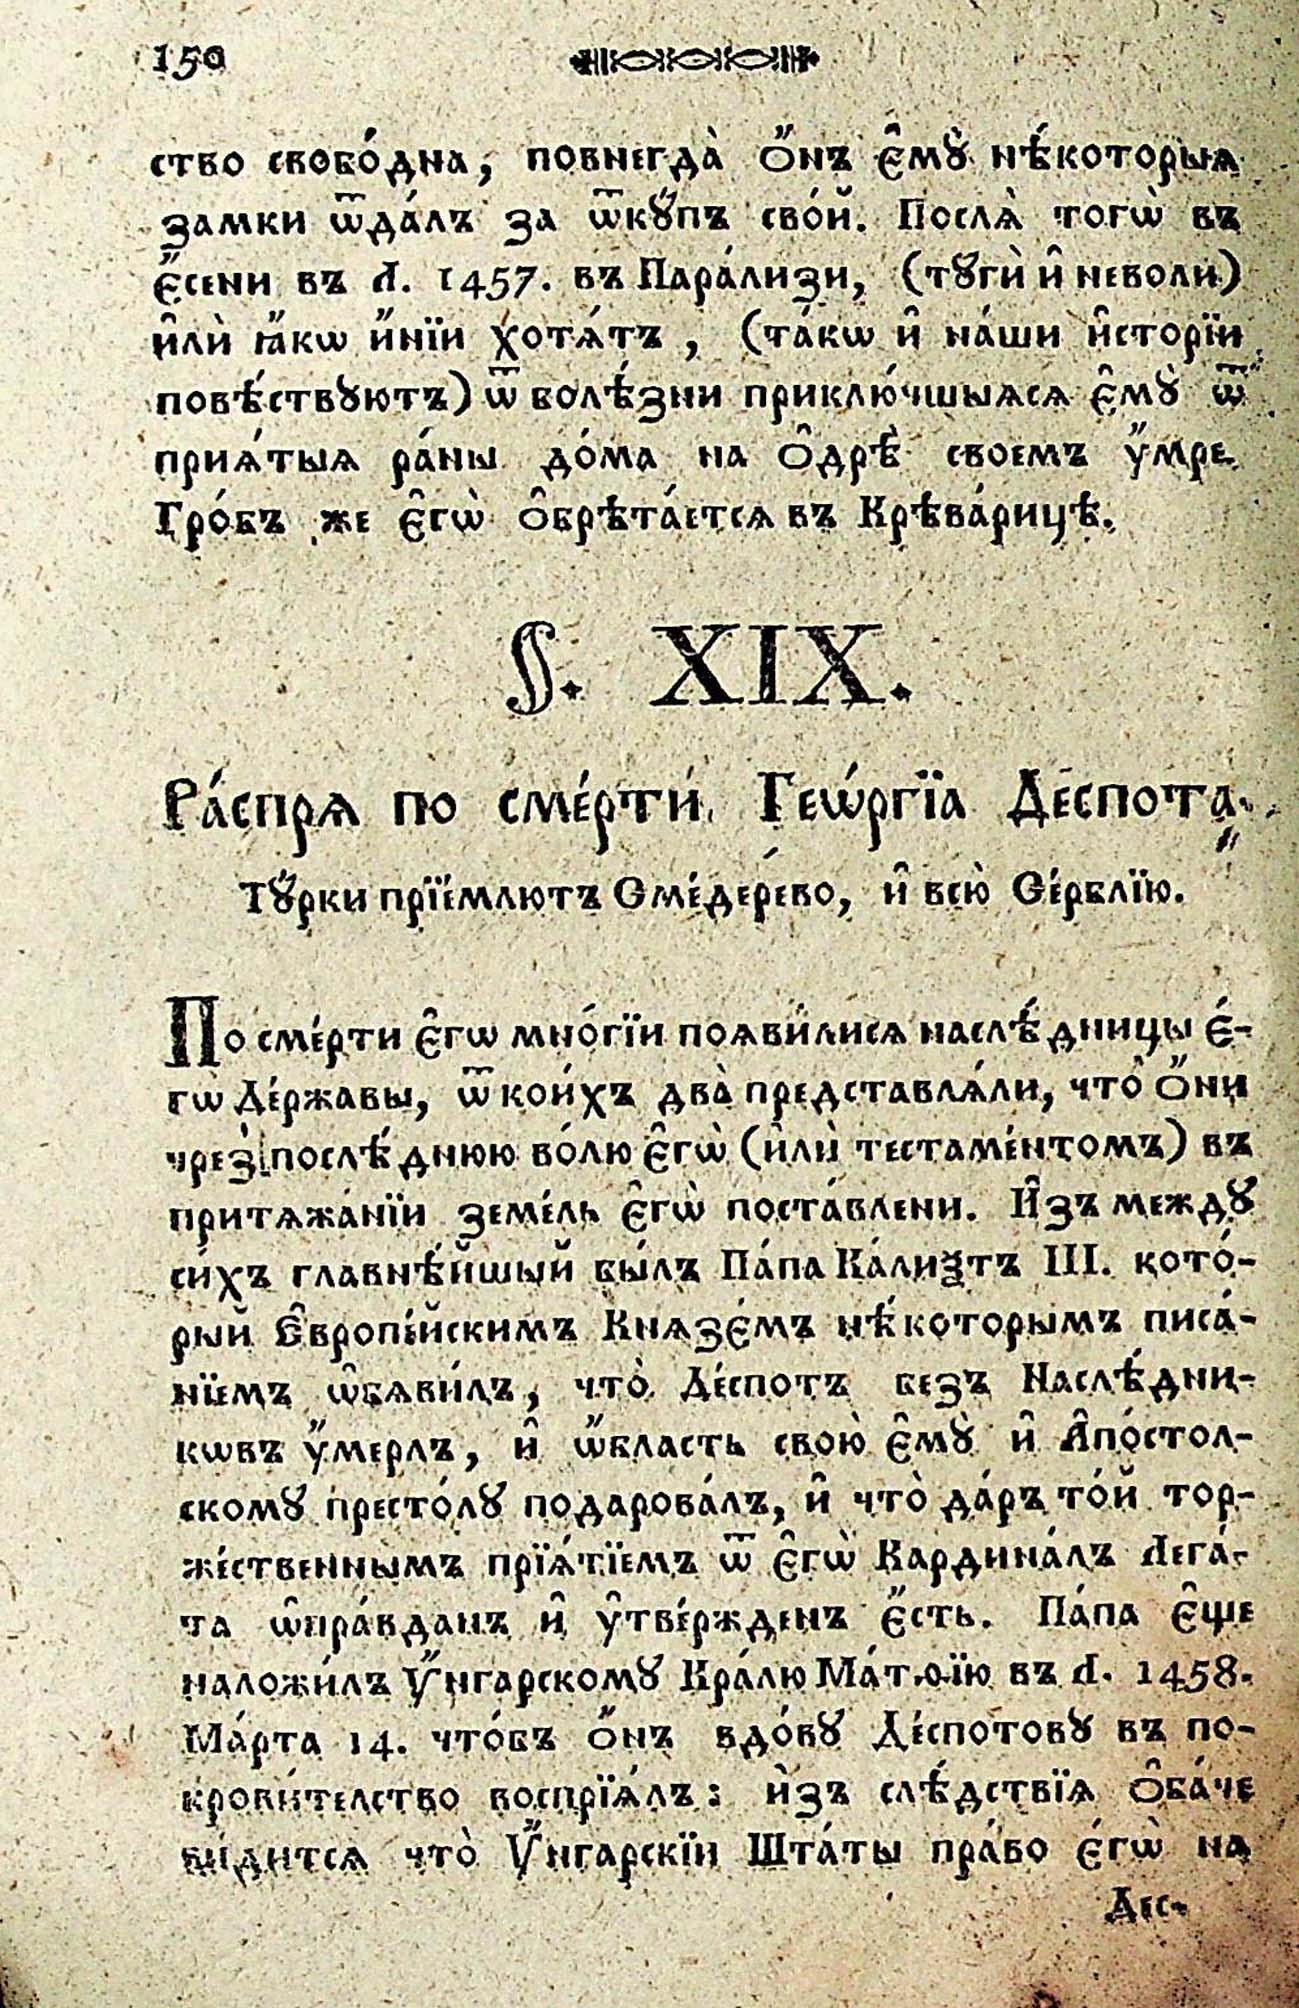 150
ство свобо́дна, повнегда̀ ѻ҆́нъ є҆мꙋ̀ нѣ́которыѧ
замки ѿда́лъ за ѿкꙋ́пъ сво́й. Послѧ̀ тогѡ̀ въ
є҆́сени въ Л. 1457. въ Пара́лизи, (тꙋгѝ и҆ неволи)
и҆лѝ ꙗ҆́кѡ и҆́нїи хотѧ́тъ, (та́кѡ и҆ на́ши и҆сторїи
повѣ́ствꙋютъ) ѿ болѣ́зни приклю́чшыѧсѧ є҆мꙋ̀ ѿ
приѧ́тыѧ ра́ны до́ма на ѻ҆дрѣ̀ своемъ ᲂу҆́мре.
Гро́бъ же є҆гѡ̀ ѻ҆брѣта́етсѧ въ Крѣва́рицѣ.
§. XIX.
Ра́спрѧ по сме́рти Геѡ́ргїа Де́спота.
Тꙋ́рки прїе́млютъ Сме́дерево, и҆ всю̀ Се́рблїю.
По сме́рти є҆гѡ мно́гїи поѧви́лисѧ наслѣ́дницы є́-
гѡ̀ Де́ржавы, ѿ кои́хъ два̀ представлѧ́ли, что̀ ѻ҆́ни
чрез̾ послѣ́днюю во́лю є҆гѡ̀ (и҆лѝ тестаме́нтомъ) въ
притѧжа́нїи земе́ль є҆гѡ̀ поста́влени. И҆зъ междꙋ
си́хъ главнѣ́йшый бы́лъ Па́па Ка́лиѯтъ III. кото́-
рый Є҆вропе́йскимъ Кнѧзе́мъ нѣ́которымъ писа́-
нїемъ ѡ҆бѧви́лъ, что̀ Де́спотъ безъ Наслѣ́дни-
кѡвъ ᲂу҆́мерлъ, и҆ ѡ҆́бласть свою̀ є҆мꙋ̀ и҆ А҆по́стол-
скомꙋ престо́лꙋ подарова́лъ, и҆ что̀ да́ръ то́й тор-
же́ственнымъ прїѧ́тїемъ ѿ є҆гѡ̀ Кардина́лъ Лега́-
та ѡ҆пра́вданъ и҆ ᲂу҆тве́ржденъ є҆́сть. Па́па є҆ще
наложи́лъ Оу҆́нгарскомꙋ Кра́лю Ма́тѳїю въ Л. 1458.
Ма́рта 14. что́бъ ѻ҆́нъ вдо́вꙋ Де́спотовꙋ въ по-
крови́телство воспрїѧ́лъ: и҆зъ слѣ́дствїѧ ѻ҆ба́че
ви́дитсѧ что̀ Оу҆́нгарскїи Шта́ты пра́во є́гѡ̀ на
Дес-